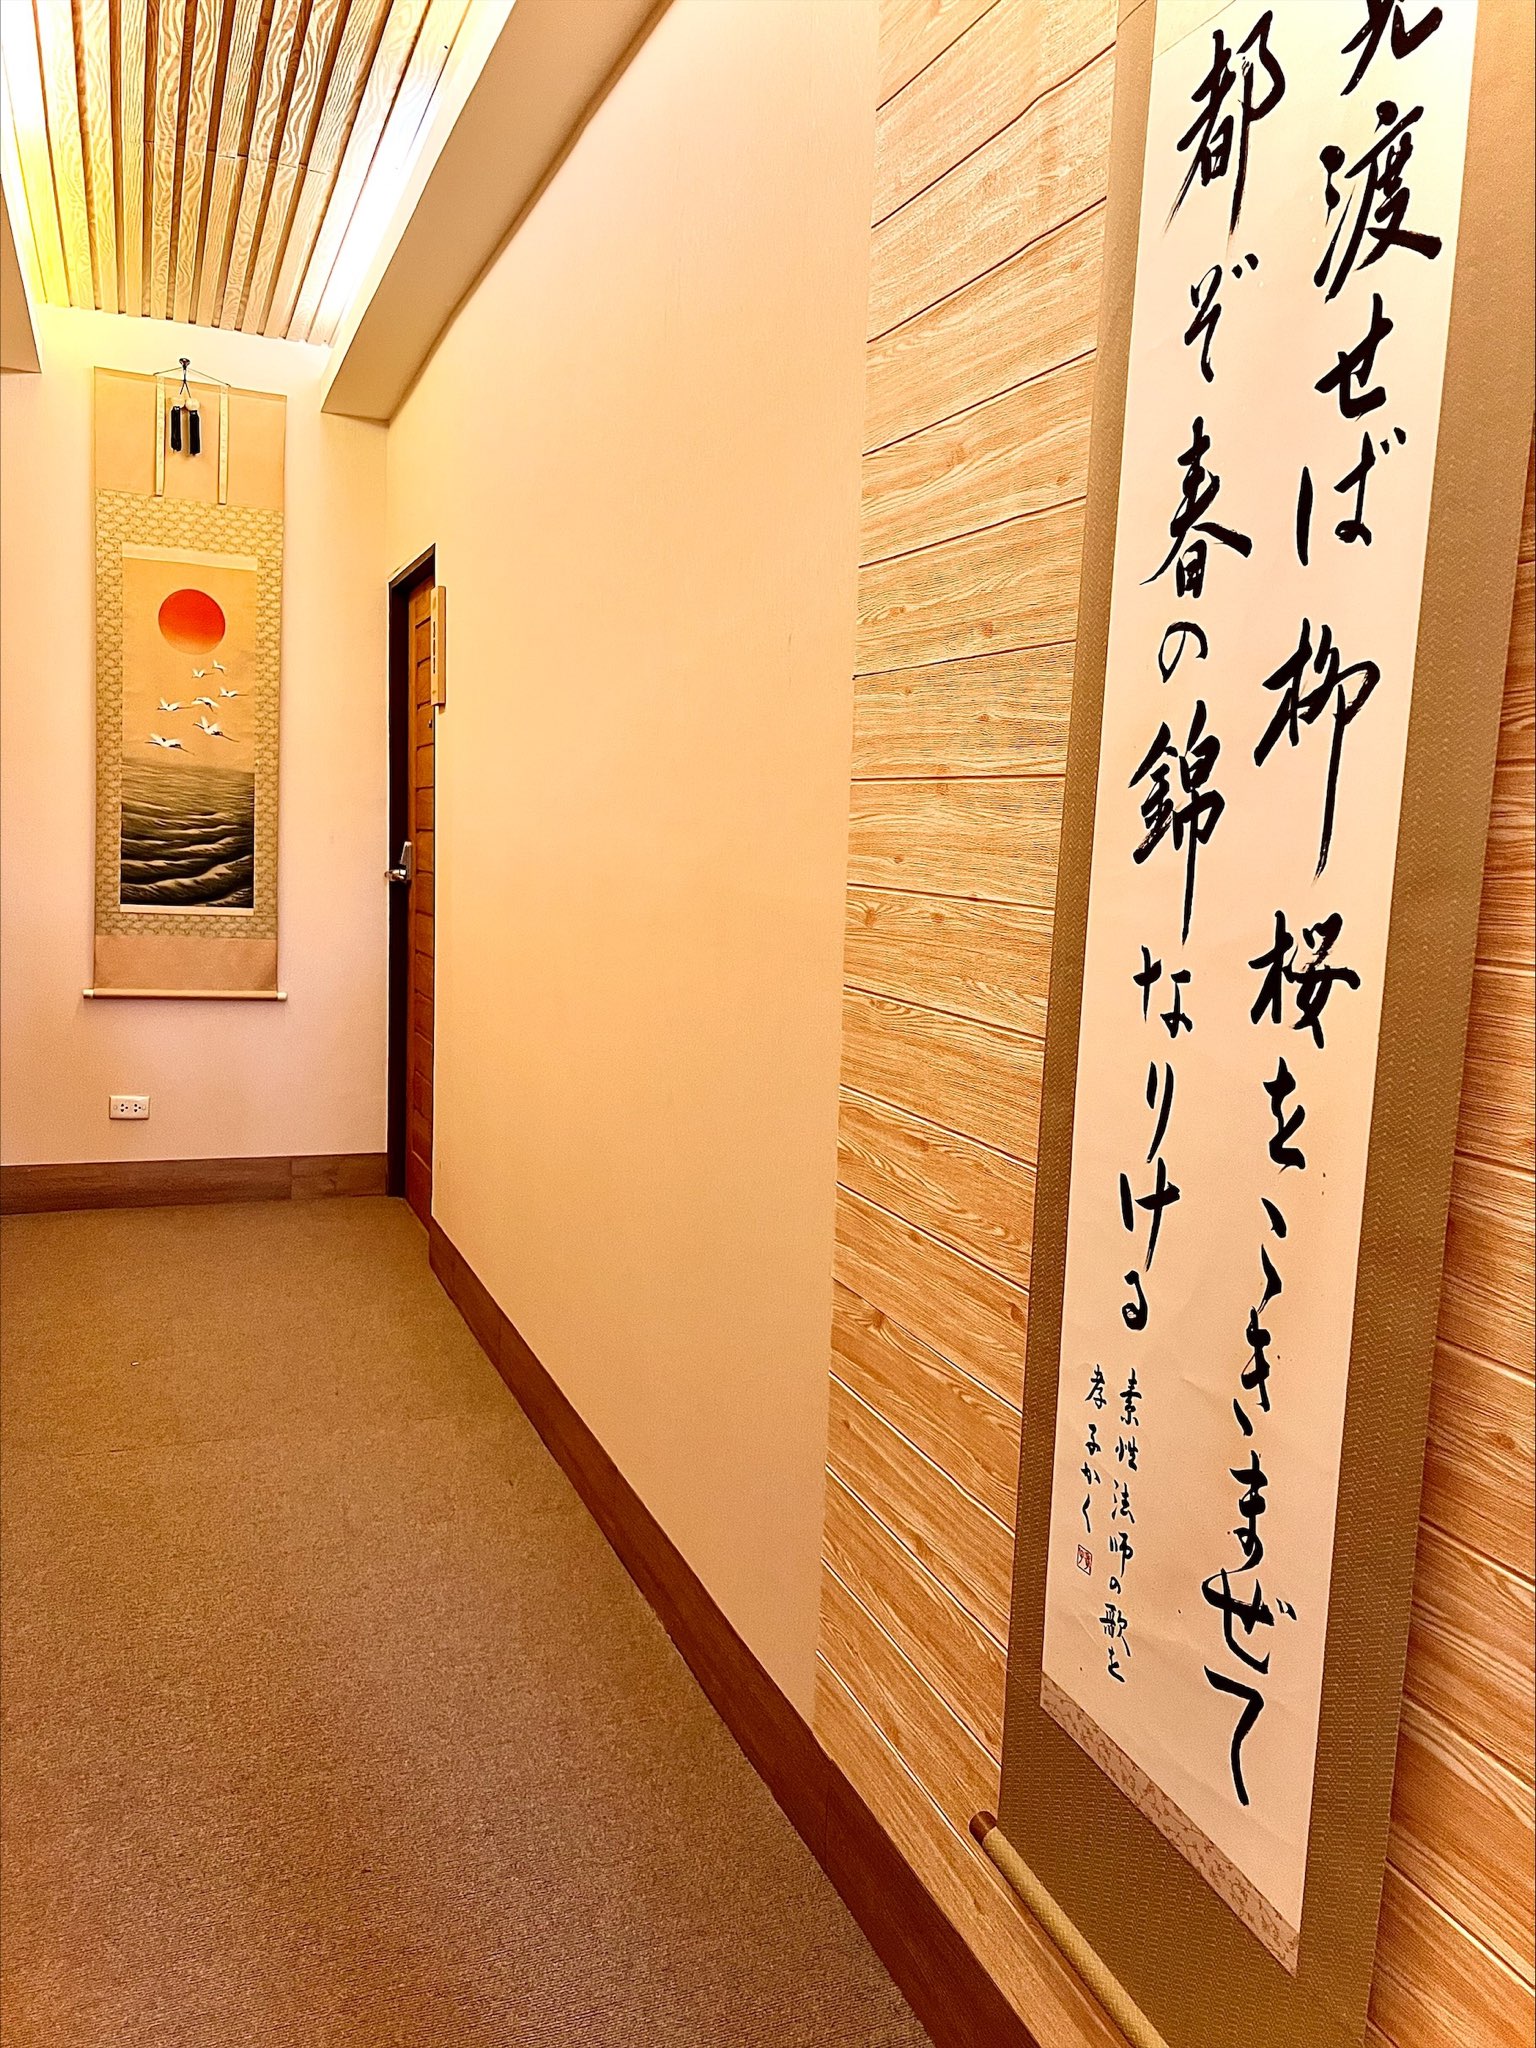 見渡せば柳桜をこきまぜて
都ぞ春の錦なりける
素性法師の歌を
孝子かく